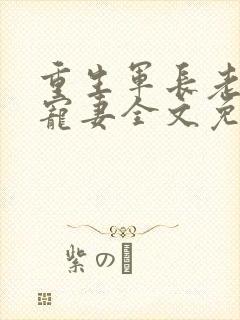 重生军长老
宠妻全文免
紫の